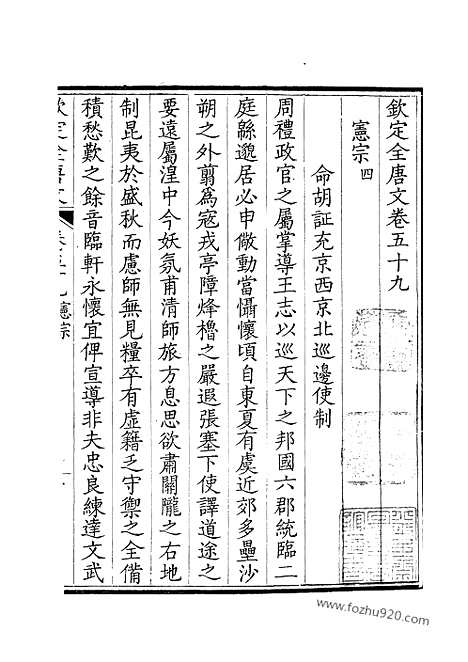 欽定全唐文卷五十九
憲宗 四
命胡証充京西京北巡邊使制
周禮政官之屬掌導王志以巡天下之邦國六郡統臨二
庭緜邈居必申儆動當懾懷頃自東夏有虞近郊多壘沙
朔之外翦為寇戎亭障烽櫓之嚴遐張塞下使譯道途之
要遠屬湟中今妖氛甫清師旅方息思欲肅關隴之右地
制昆夷於盛秋而慮師無見糧卒有虛籍乏守禦之全備
積愁歎之餘音臨軒永懷宜俾宣導非夫忠良練達文武
欽定全唐文 卷五十九 憲宗 一
www.fozhu920.com